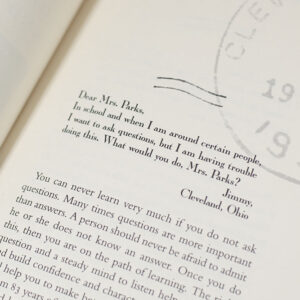 CLE
19
'9
Dear Mrs. Parks,
In school and when I am around certain people,
I want to ask questions, but I am having trouble
doing this. What would you do, Mrs. Parks?
Jimmy,
Cleveland, Ohio
You can never learn very much if you do not ask
questions. Many times questions are more important
than answers. A person should never be afraid to admit
he or she does not know an answer. Once you do
this, then you are on the path of learning. The
question and a steady mind to listen
build confidence and
help you to make
83 years